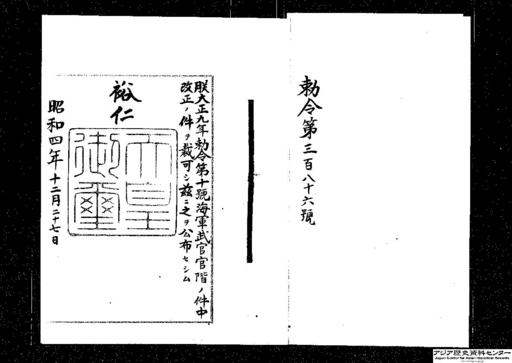 勅令第三百八十六號
朕大正九年勅令第十號海軍武官官階ノ件中
改正ノ件ヲ裁可シ茲ニ之ヲ公布セシム
裕仁
天皇
御璽
昭和四年十二月二十七日
アジア歴史資料センター
Japan Center for Asian Historical Records